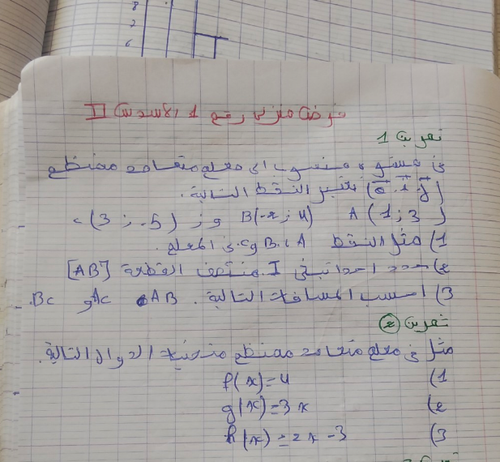 8
2
6
فرض منزلي رقم 1 الأسدس II
تمرين 1
في مستوى منسوب الى معلم متعامد ممنظم
(o, i, j) نعتبر النقط التالية.
A (1 ; 3) B(-2 ; 4) و C (3 ; -5)
1) مثل النقط A، B و C في المعلم.
2) حدد احداثيتي I منتصف القطعة [AB]
3) احسب المسافات التالية. AB، AC و BC.
تمرين 2
مثل في معلم متعامد ممنظم منحنيات الدوال التالية.
1) f(x)=4
2) g(x)=3x
3) h(x)=2x-3